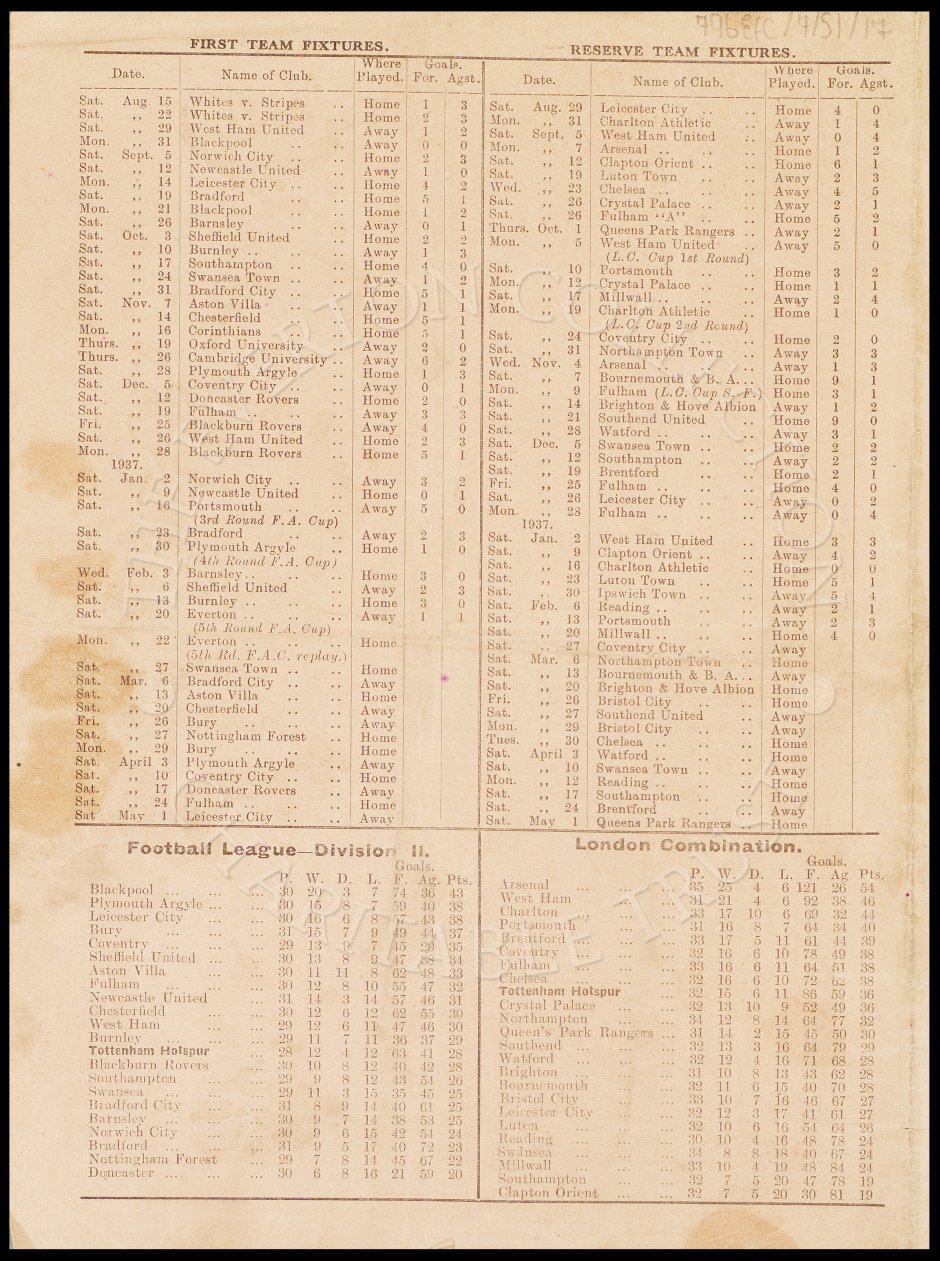 FIRST TEAM FIXTURES.
Date. Name of Club. Where Played. Goals. For. Agst.
Sat. Aug 15 Whites v. Stripes .. Home 1 3
Sat. ,, 22 Whites v. Stripes .. Home 2 3
Sat. ,, 29 West Ham United .. Away 1 2
Mon. ,, 31 Blackpool .. .. Away 0 0
Sat. Sept. 5 Norwich City .. .. Home 2 3
Sat. ,, 12 Newcastle United .. Away 1 0
Mon. ,, 14 Leicester City .. .. Home 4 2
Sat. ,, 19 Bradford .. .. Home 5 1
Mon. ,, 21 Blackpool .. .. Home 1 2
Sat. ,, 26 Barnsley .. .. Away 0 1
Sat. Oct. 3 Sheffield United .. Home 2 2
Sat. ,, 10 Burnley .. .. .. Away 1 3
Sat. ,, 17 Southampton .. .. Home 4 0
Sat. ,, 24 Swansea Town .. .. Away 1 2
Sat. ,, 31 Bradford City .. .. Home 5 1
Sat. Nov. 7 Aston Villa .. .. Away 1 1
Sat. ,, 14 Chesterfield .. .. Home 5 1
Mon. ,, 16 Corinthians .. .. Home 5 1
Thurs. ,, 19 Oxford University .. Away 2 0
Thurs. ,, 26 Cambridge University .. Away 6 2
Sat. ,, 28 Plymouth Argyle .. Home 1 3
Sat. Dec. 5 Coventry City .. .. Away 0 1
Sat. ,, 12 Doncaster Rovers .. Home 2 0
Sat. ,, 19 Fulham .. .. .. Away 3 3
Fri. ,, 25 Blackburn Rovers .. Away 4 0
Sat. ,, 26 West Ham United .. Home 2 3
Mon. ,, 28 Blackburn Rovers .. Home 5 1
1937.
Sat. Jan. 2 Norwich City .. .. Away 3 2
Sat. ,, 9 Newcastle United .. Home 0 1
Sat. ,, 16 Portsmouth .. .. Away 5 0
(3rd Round F.A. Cup)
Sat. ,, 23 Bradford .. .. Away 2 3
Sat. ,, 30 Plymouth Argyle .. Home 1 0
(4th Round F.A. Cup)
Wed. Feb. 3 Barnsley .. .. .. Home 3 0
Sat. ,, 6 Sheffield United .. Away 2 3
Sat. ,, 13 Burnley .. .. .. Home 3 0
Sat. ,, 20 Everton .. .. .. Away 1 1
(5th Round F.A. Cup)
Mon. ,, 22 Everton .. .. .. Home
(5th Rd. F.A.C. replay.)
Sat. ,, 27 Swansea Town .. .. Home
Sat. Mar. 6 Bradford City .. .. Away
Sat. ,, 13 Aston Villa .. .. Home
Sat. ,, 20 Chesterfield .. .. Away
Fri. ,, 26 Bury .. .. .. Away
Sat. ,, 27 Nottingham Forest .. Home
Mon. ,, 29 Bury .. .. .. Home
Sat. April 3 Plymouth Argyle .. Away
Sat. ,, 10 Coventry City .. .. Home
Sat. ,, 17 Doncaster Rovers .. Away
Sat. ,, 24 Fulham .. .. .. Home
Sat May 1 Leicester City .. .. Away
RESERVE TEAM FIXTURES.
Date. Name of Club. Where Played. Goals. For. Agst.
Sat. Aug. 29 Leicester City .. .. Home 4 0
Mon. ,, 31 Charlton Athletic .. Away 1 4
Sat. Sept. 5 West Ham United .. Away 0 4
Mon. ,, 7 Arsenal .. .. .. Home 1 2
Sat. ,, 12 Clapton Orient .. .. Home 6 1
Sat. ,, 19 Luton Town .. .. Away 2 3
Wed. ,, 23 Chelsea .. .. .. Away 4 5
Sat. ,, 26 Crystal Palace .. .. Away 2 1
Sat. ,, 26 Fulham "A" .. .. Home 5 2
Thurs. Oct. 1 Queens Park Rangers .. Away 2 1
Mon. ,, 5 West Ham United .. Away 5 0
(L.C. Cup 1st Round)
Sat. ,, 10 Portsmouth .. .. Home 3 2
Mon. ,, 12 Crystal Palace .. .. Home 1 1
Sat. ,, 17 Millwall .. .. .. Away 2 4
Mon. ,, 19 Charlton Athletic .. Home 1 0
(L.C. Cup 2nd Round)
Sat. ,, 24 Coventry City .. .. Home 2 0
Sat. ,, 31 Northampton Town .. Away 3 3
Wed. Nov. 4 Arsenal .. .. .. Away 1 3
Sat. ,, 7 Bournemouth & B. A... Home 9 1
Mon. ,, 9 Fulham (L.C. Cup S. F.) Home 3 1
Sat. ,, 14 Brighton & Hove Albion Away 1 2
Sat. ,, 21 Southend United .. Home 9 0
Sat. ,, 28 Watford .. .. .. Away 3 1
Sat. Dec. 5 Swansea Town .. .. Home 2 2
Sat. ,, 12 Southampton .. .. Away 2 2
Sat. ,, 19 Brentford .. .. Home 2 1
Fri. ,, 25 Fulham .. .. .. Home 4 0
Sat. ,, 26 Leicester City .. .. Away 0 2
Mon. ,, 28 Fulham .. .. .. Away 0 4
1937.
Sat. Jan. 2 West Ham United .. Home 3 3
Sat. ,, 9 Clapton Orient .. .. Away 4 2
Sat. ,, 16 Charlton Athletic .. Home 0 0
Sat. ,, 23 Luton Town .. .. Home 5 1
Sat. ,, 30 Ipswich Town .. .. Away 5 4
Sat. Feb. 6 Reading .. .. .. Away 2 1
Sat. ,, 13 Portsmouth .. .. Away 2 3
Sat. ,, 20 Millwall .. .. .. Home 4 0
Sat. ,, 27 Coventry City .. .. Away
Sat. Mar. 6 Northampton Town .. Home
Sat. ,, 13 Bournemouth & B. A... Away
Sat. ,, 20 Brighton & Hove Albion Home
Fri. ,, 26 Bristol City .. .. Home
Sat. ,, 27 Southend United .. Away
Mon. ,, 29 Bristol City .. .. Away
Tues. ,, 30 Chelsea .. .. .. Home
Sat. April 3 Watford .. .. .. Home
Sat. ,, 10 Swansea Town .. .. Away
Mon. ,, 12 Reading .. .. .. Home
Sat. ,, 17 Southampton .. .. Home
Sat. ,, 24 Brentford .. .. Away
Sat. May 1 Queens Park Rangers .. Home
Football League—Division II.
Goals.
P. W. D. L. F. Ag. Pts.
Blackpool ... ... ... 30 20 3 7 74 36 43
Plymouth Argyle ... ... 30 15 8 7 59 40 38
Leicester City ... ... 30 16 6 8 57 43 38
Bury ... ... ... 31 15 7 9 49 44 37
Coventry ... ... ... 29 13 9 7 45 29 35
Sheffield United ... ... 30 13 8 9 47 38 34
Aston Villa ... ... 30 11 11 8 62 48 33
Fulham ... ... ... 30 12 8 10 55 47 32
Newcastle United ... 31 14 3 14 57 46 31
Chesterfield ... ... 30 12 6 12 62 55 30
West Ham ... ... 29 12 6 11 47 46 30
Burnley ... ... ... 29 11 7 11 36 37 29
Tottenham Hotspur ... 28 12 4 12 63 41 28
Blackburn Rovers ... 30 10 8 12 40 42 28
Southampton ... ... 29 9 8 12 43 54 26
Swansea ... ... ... 29 11 3 15 35 45 25
Bradford City ... ... 31 8 9 14 40 61 25
Barnsley ... ... ... 30 9 7 14 38 53 25
Norwich City ... ... 30 9 6 15 42 54 24
Bradford ... ... ... 31 9 5 17 40 72 23
Nottingham Forest ... 29 7 8 14 45 67 22
Doncaster ... ... ... 30 6 8 16 21 59 20
London Combination.
Goals.
P. W. D. L. F. Ag. Pts.
Arsenal ... ... ... 35 25 4 6 121 26 54
West Ham ... ... 31 21 4 6 92 38 46
Charlton ... ... ... 33 17 10 6 69 32 44
Portsmouth ... ... 31 16 8 7 64 34 40
Brentford ... ... ... 33 17 5 11 61 44 39
Coventry ... ... ... 32 16 6 10 78 49 38
Fulham ... ... ... 33 16 6 11 64 51 38
Chelsea ... ... ... 32 16 6 10 72 62 38
Tottenham Hotspur ... 32 15 6 11 86 59 36
Crystal Palace ... ... 32 13 10 9 52 49 36
Northampton ... ... 34 12 8 14 64 77 32
Queen's Park Rangers ... 31 14 2 15 45 50 30
Southend ... ... ... 32 13 3 16 64 79 29
Watford ... ... ... 32 12 4 16 71 68 28
Brighton ... ... ... 31 10 8 13 43 62 28
Bournemouth ... ... 32 11 6 15 40 70 28
Bristol City ... ... 33 10 7 16 46 67 27
Leicester City ... ... 32 12 3 17 41 61 27
Luton ... ... ... 32 10 6 16 54 64 26
Reading ... ... ... 30 10 4 16 48 78 24
Swansea ... ... ... 34 8 8 18 40 67 24
Millwall ... ... ... 33 10 4 19 48 84 24
Southampton ... ... 32 7 5 20 47 78 19
Clapton Orient ... ... 32 7 5 20 30 81 19